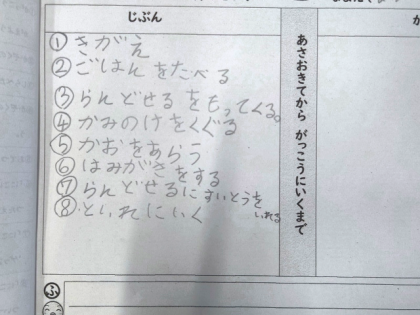 じぶん
①きがえ
②ごはんをたべる
③らんどせるをもってくる。
④かみのけをくぐる
⑤かおをあらう
⑥はみがきをする
⑦らんどせるにすいとうを
いれる
⑧といれにいく
あさおきてから がっこうにいくまで
ふ